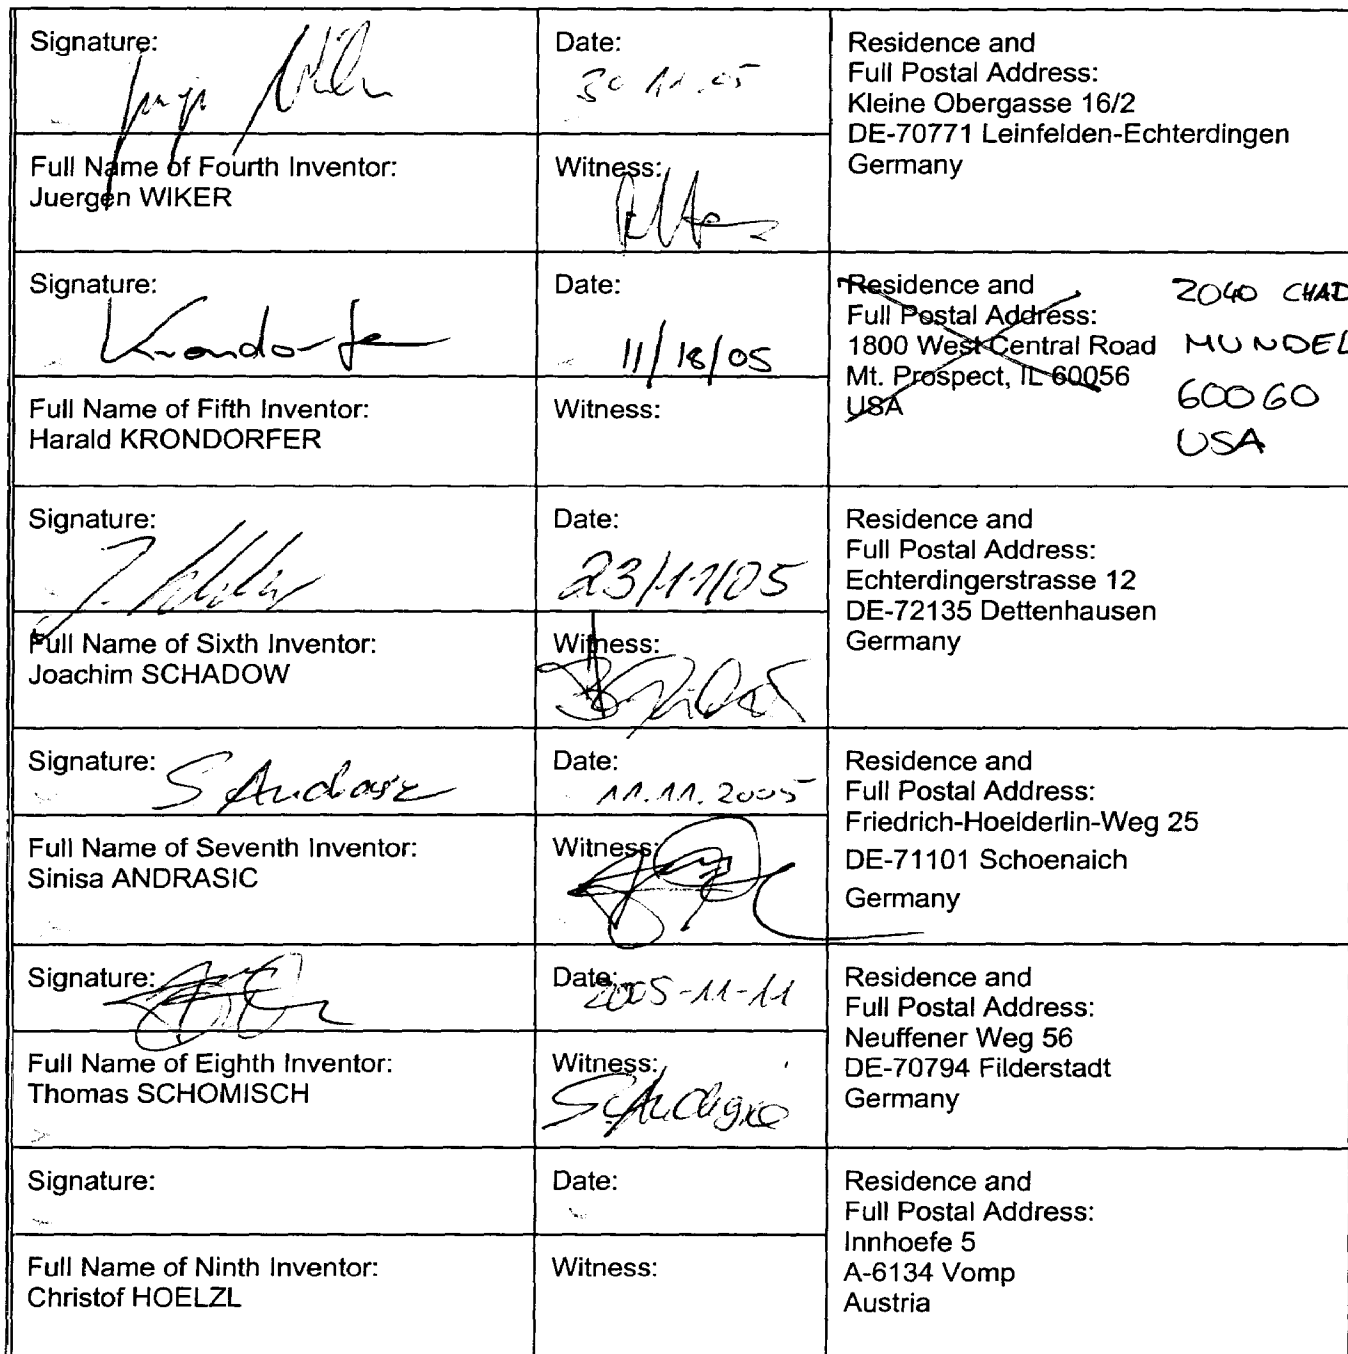 Signature:
Date:
30.11.05
Residence and
Full Postal Address:
Kleine Obergasse 16/2
DE-70771 Leinfelden-Echterdingen
Germany
Full Name of Fourth Inventor:
Juergen WIKER
Witness:
Signature:
Krondorfer
Date:
11/18/05
Residence and
Full Postal Address:
1800 West Central Road
Mt. Prospect, IL 60056
USA
2040 CHAD
MUNDEL
60060
USA
Full Name of Fifth Inventor:
Harald KRONDORFER
Witness:
Signature:
Date:
23/11/05
Residence and
Full Postal Address:
Echterdingerstrasse 12
DE-72135 Dettenhausen
Germany
Full Name of Sixth Inventor:
Joachim SCHADOW
Witness:
Signature:
S Andrasic
Date:
11.11.2005
Residence and
Full Postal Address:
Friedrich-Hoelderlin-Weg 25
DE-71101 Schoenaich
Germany
Full Name of Seventh Inventor:
Sinisa ANDRASIC
Witness:
Signature:
Date:
2005-11-11
Residence and
Full Postal Address:
Neuffener Weg 56
DE-70794 Filderstadt
Germany
Full Name of Eighth Inventor:
Thomas SCHOMISCH
Witness:
S Andrasic
Signature:
Date:
Residence and
Full Postal Address:
Innhoefe 5
A-6134 Vomp
Austria
Full Name of Ninth Inventor:
Christof HOELZL
Witness: